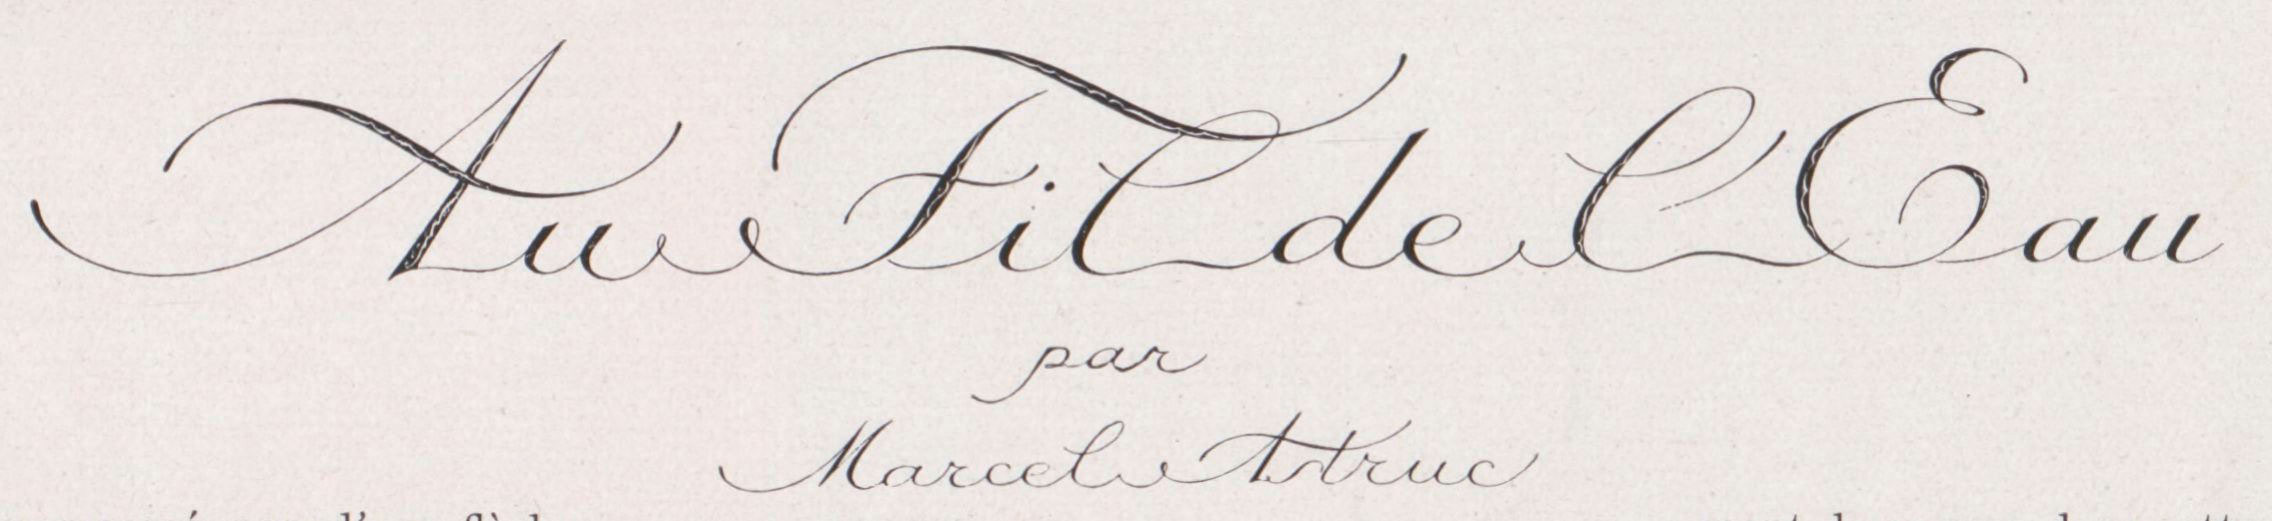 Au Fil de l'Eau
par
Marcel Astruc